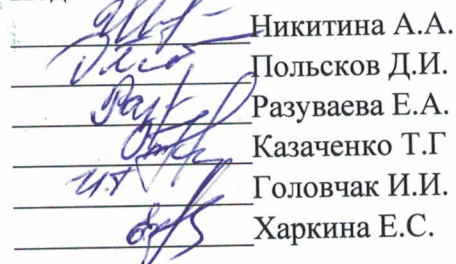 Никитина А.А.
Польсков Д.И.
Разуваева Е.А.
Казаченко Т.Г
Головчак И.И.
Харкина Е.С.